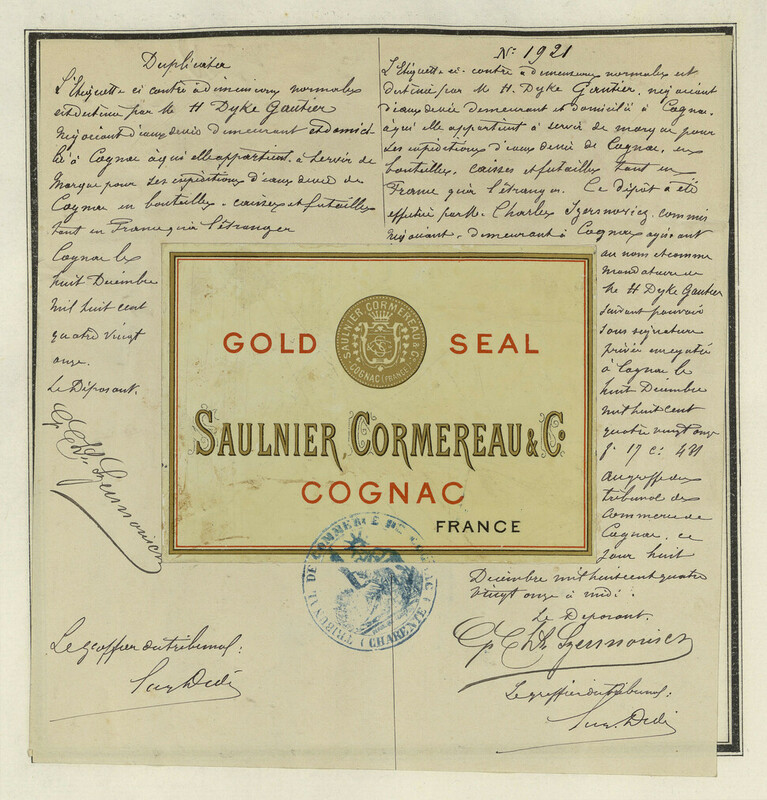 Duplicata
L'Etiquette ci contre à dimensions normales
est detenue par M H Dyke Gautier
négociant d'eaux devie demeurant et domici-
lié à Cognac à qui elle appartient. à servir de
marque pour ses expéditions d'eaux devie de
Cognac en bouteilles. caisses et futailles
tant en France qu'à l'étranger
Cognac le
huit Décembre
mil huit cent
quatre vingt
onze.
Le Déposant.
Le greffier du tribunal:
N° 1921
L'Etiquette ci-contre à dimensions normales est
destinée par M H. Dyke Gautier, négociant
d'eaux devie demeurant et domicilié à Cognac,
à qui elle appartient à servir de marque pour
ses expéditions d'eaux devie de Cognac, en
bouteilles, caisses et futailles tant en
France qu'à l'étranger. Ce dépôt à été
effectué par M. Charles commis
négociant, demeurant à Cognac agissant
au nom et comme
mandataire de
M H Dyke Gautier
suivant pouvoir
sous signature
privée enregistré
à Cognac le
huit Décembre
mil huit cent
quatre vingt onze
f° 17 c° 431
Au greffe du
tribunal de
Commerce de
Cognac, ce
jour huit
Décembre mil huit cent quatre
vingt onze à midi.
Le Déposant.
Le greffier du tribunal:
GOLD SEAL
SAULNIER, CORMEREAU & C°
COGNAC (FRANCE)
SAULNIER, CORMEREAU & C°
COGNAC
FRANCE
TRIBUNAL DE COMMERCE DE COGNAC
(CHARENTE)